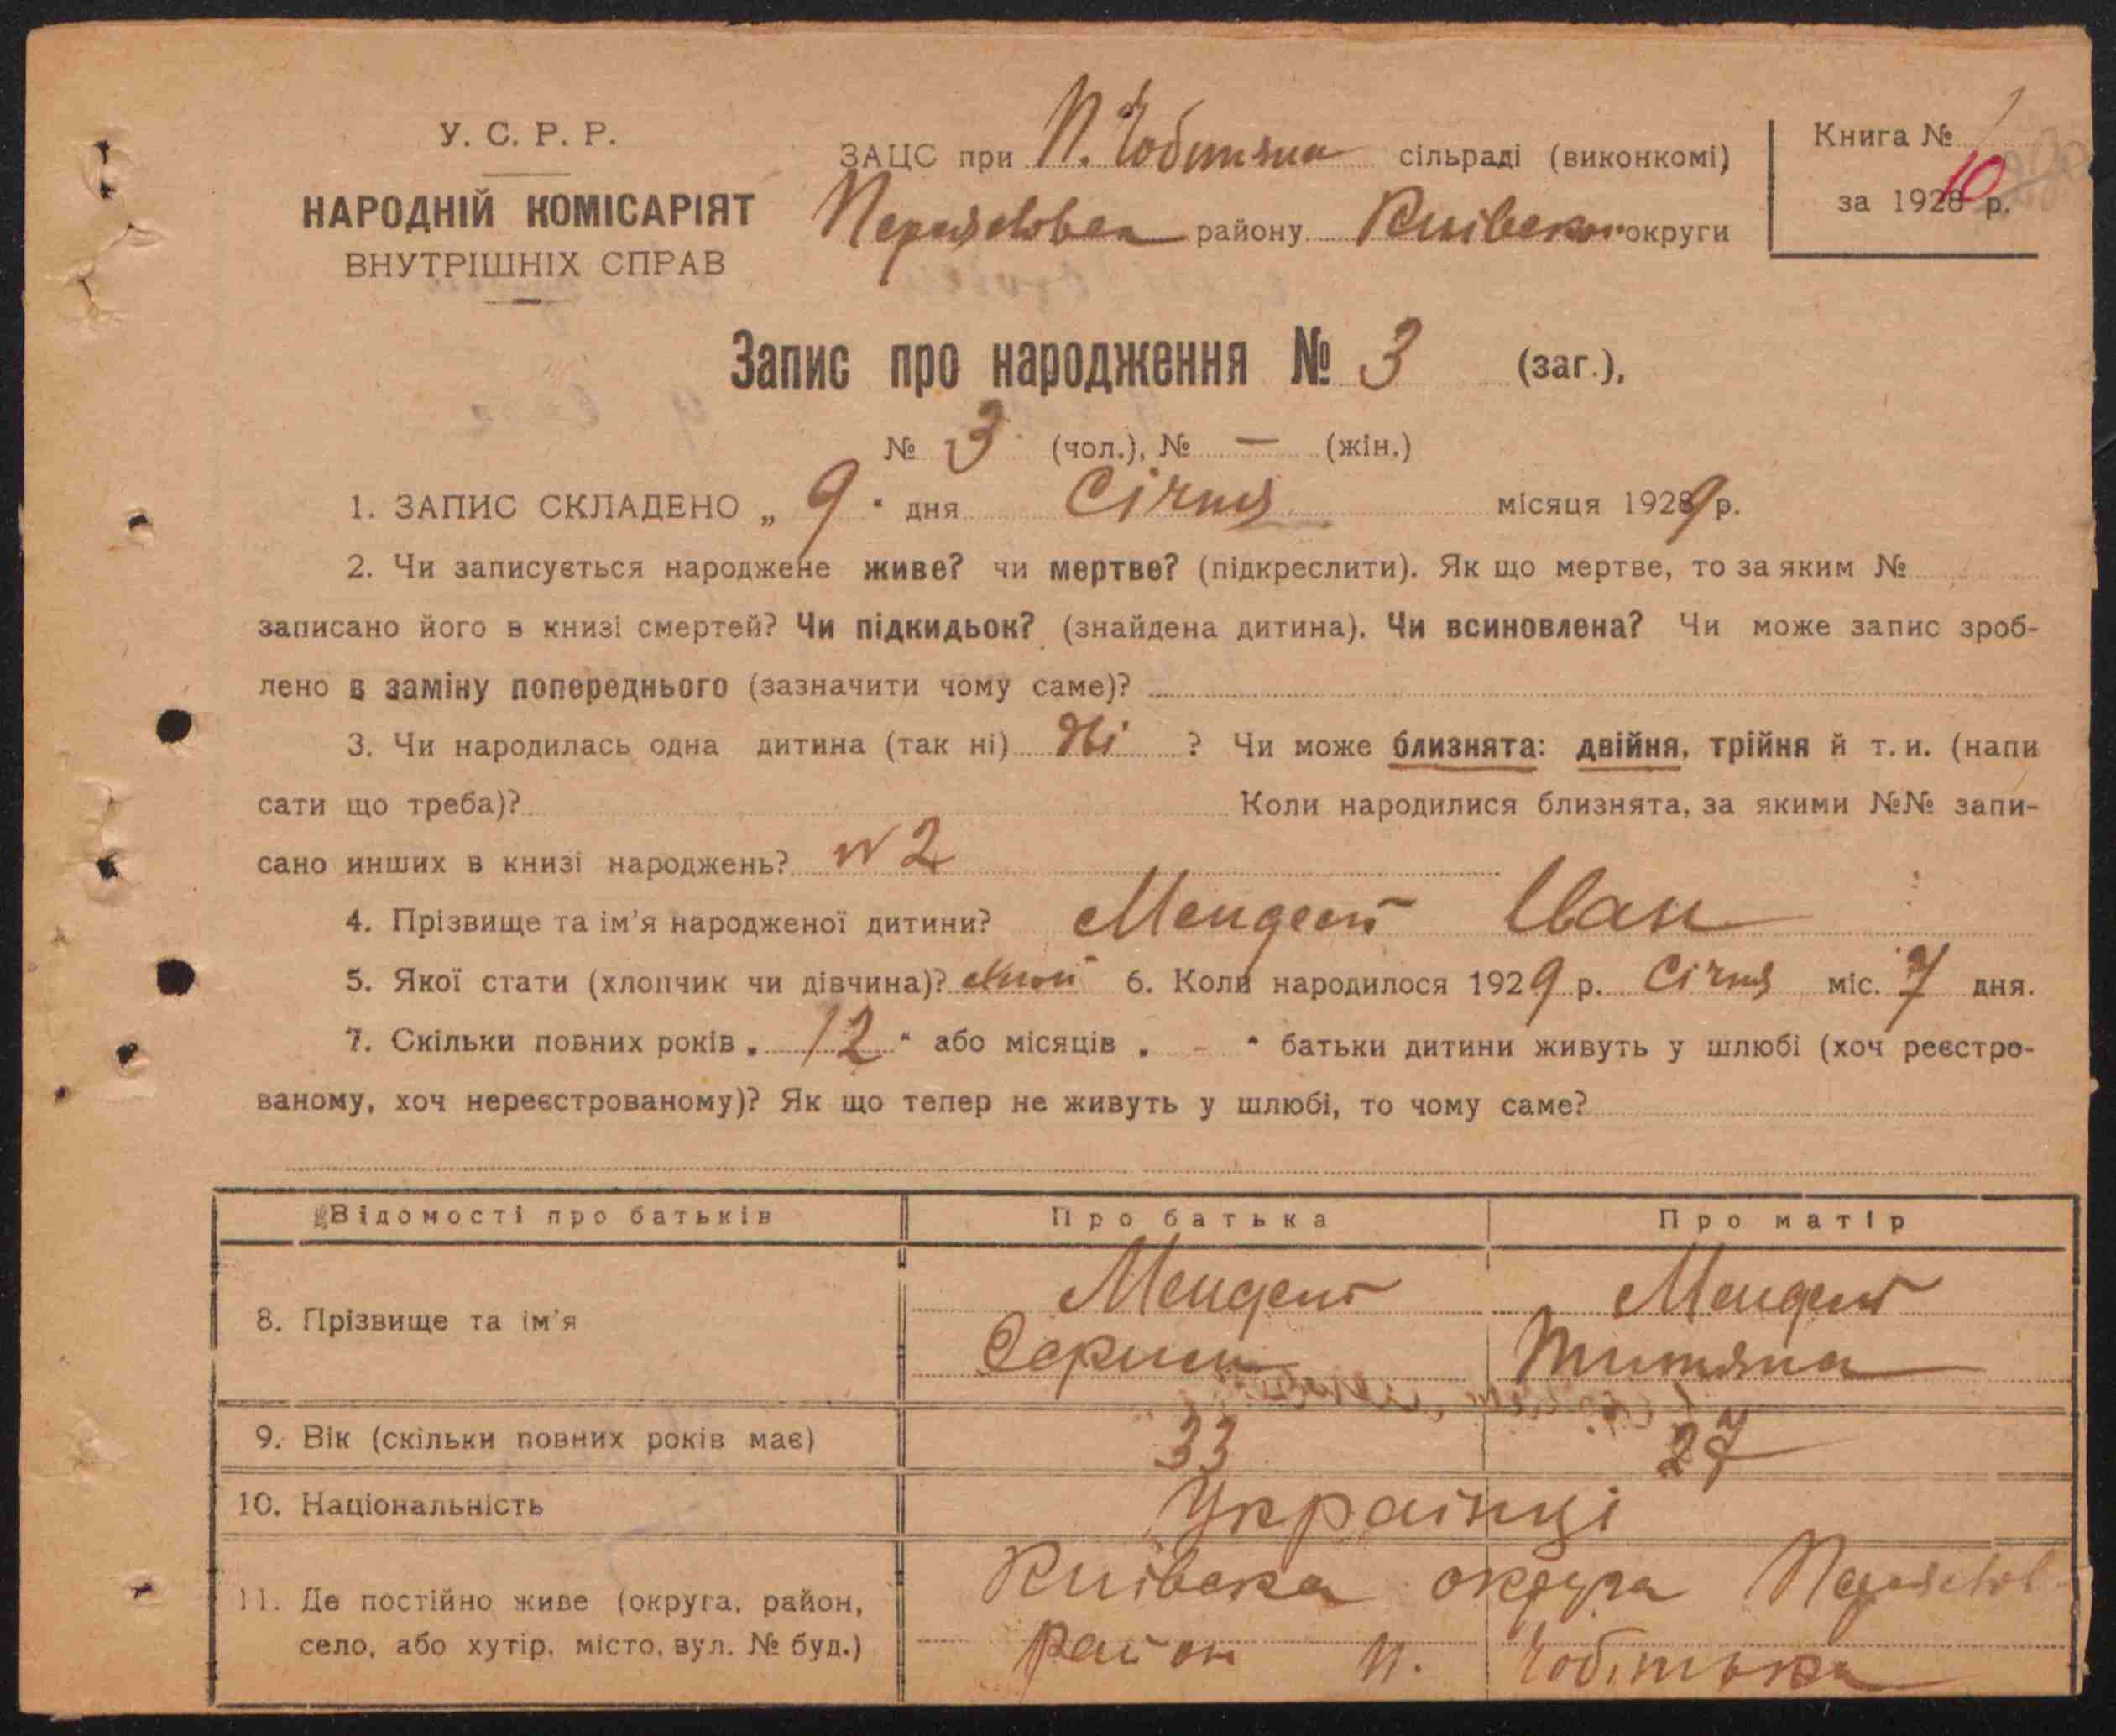 У. С. Р. Р.
НАРОДНІЙ КОМІСАРІЯТ
ВНУТРІШНІХ СПРАВ
ЗАЦС при П. сільраді (виконкомі)
району округи
Книга № 1
за 1928 р.
10
Запис про народження № 3 (заг.),
№ 3 (чол.), № — (жін.)
1. ЗАПИС СКЛАДЕНО „ 9 " дня Січня місяця 1929 р.
2. Чи записується народжене живе? чи мертве? (підкреслити). Як що мертве, то за яким №
записано його в книзі смертей? Чи підкидьок? (знайдена дитина). Чи всиновлена? Чи може запис зроб-
лено в заміну попереднього (зазначити чому саме)?
3. Чи народилась одна дитина (так ні) дві ? Чи може близнята: двійня, трійня й т. и. (напи
сати що треба)? Коли народилися близнята, за якими №№ запи-
сано инших в книзі народжень? № 2
4. Прізвище та ім'я народженої дитини? Мендель Іван
5. Якої стати (хлопчик чи дівчина)? 6. Коли народилося 1929 р. Січня міс. 7 дня.
7. Скільки повних років „ 12 " або місяців „ - " батьки дитини живуть у шлюбі (хоч реєстро-
ваному, хоч нереєстрованому)? Як що тепер не живуть у шлюбі, то чому саме?
Відомості про батьків Про батька Про матір
8. Прізвище та ім'я
Мендель Мендель
9. Вік (скільки повних років має) 33 27
10. Національність Українці
11. Де постійно живе (округа, район,
село, або хутір, місто, вул. № буд.)
Київска округа
район п.